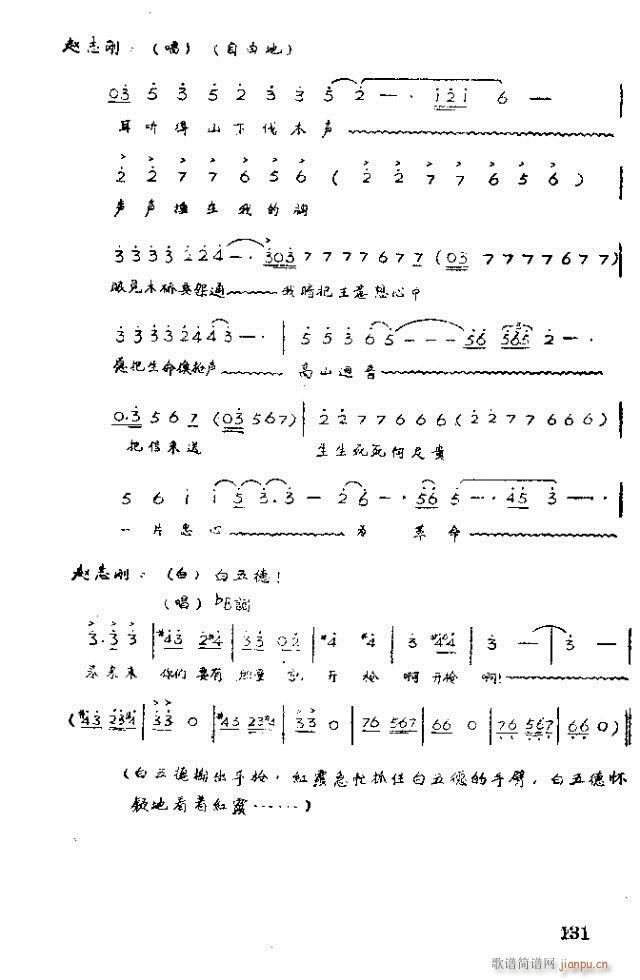 赵志刚：（唱）（自由地）
0 3 5 3 5 2 3 3 5 2 — · 1 2 1 6 —
耳听得山下伐木声
2 2 7 7 6 5 6 ( 2 2 7 7 6 5 6 )
声声撞在我的胸
3 3 3 3 2 2 4 — · 3 0 3 7 7 7 7 6 7 7 (0 3 7 7 7 7 6 7 7)
眼见木桥要架通 我时把王 想心中
3 3 3 3 2 4 4 3 — · | 5 5 3 6 5 — — — 5 6 5 6 5 2 — ·
愿把生命换枪声 高山迴音
0 . 3 5 6 7 (0 3 5 6 7) | 2 2 7 7 6 6 6 (2 2 7 7 6 6 6)
把信来送 生生死死何足贵
5 6 1 1 5 3 . 3 — 2 6 — · 5 6 5 — · 4 5 3 —
一片忠心 为 革命
赵志刚：（白）白五德！
（唱）♭E调
3 · 3 3 | #4 3 2 #4 | 3 3 0 2 | #4 #4 | 3 #4 4 | 3 — | 3 —
你们要有 开 枪 啊开枪 啊！
(#4 3 2 3 #4 | 3 3 0 | #4 3 2 3 #4 | 3 3 0 | 7 6 5 6 7 | 6 6 0 | 7 6 5 6 7 | 6 6 0)
（白五德掏出手枪，紅霞急忙抓住白五德的手臂，白五德怀
疑地看着紅霞……）
131
歌谱简谱网 jianpu.cn